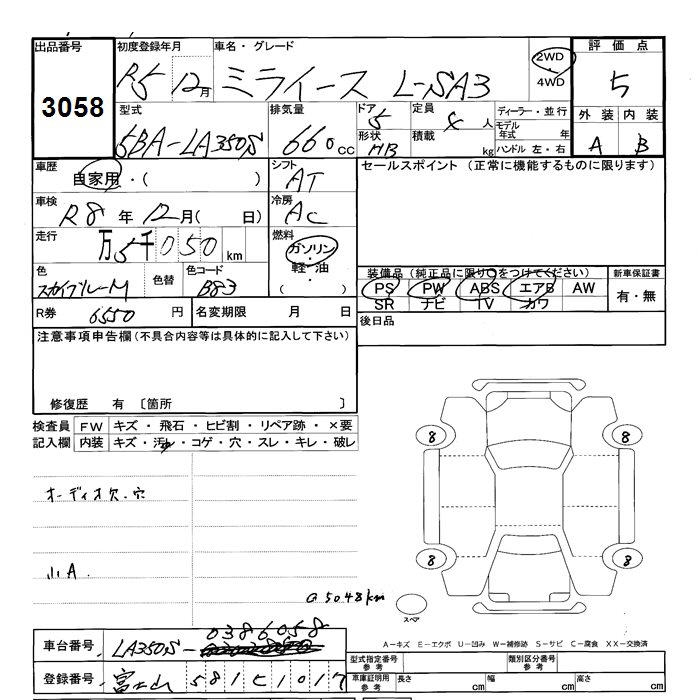 出品番号 初度登録年月 車名・グレード 評価点
3058 R5 12月 ミライース L-SA3 2WD 4WD 5
型式 排気量 ドア 定員 ディーラー・並行 外装 内装
5BA-LA350S 660cc 5 4人 モデル年式 年 A B
形状 HB 積載 kg ハンドル 左・右
車歴 シフト セールスポイント (正常に機能するものに限ります)
自家用・( ) AT
車検 冷房
R8年12月( 日) AC
走行 燃料
万5千050km ガソリン・
色 色替 色コード 軽・油 装備品(純正品に限り○をつけてください) 新車保証書
スカイブルーM B83 ( ) PS PW ABS エアB AW 有・無
SR ナビ TV カワ
R券 6550円 名変期限 月 日 後日品
注意事項申告欄(不具合内容等は具体的に記入して下さい)
修復歴 有 〔箇所 〕
検査員 FW キズ・飛石・ヒビ割・リペア跡・×要
記入欄 内装 キズ・汚れ・コゲ・穴・スレ・キレ・破レ
8 8
オーディオ欠.穴
小A.
8 8
@5048km
スペア
0386058
車台番号 LA350S-
A-キズ E-エクボ U-凹み W-補修跡 S-サビ C-腐食 XX-交換済
型式指定番号 参考 類別区分番号 参考
登録番号 富士山 581 1017
車庫証明用 参考 長さ cm 幅 cm 高さ cm